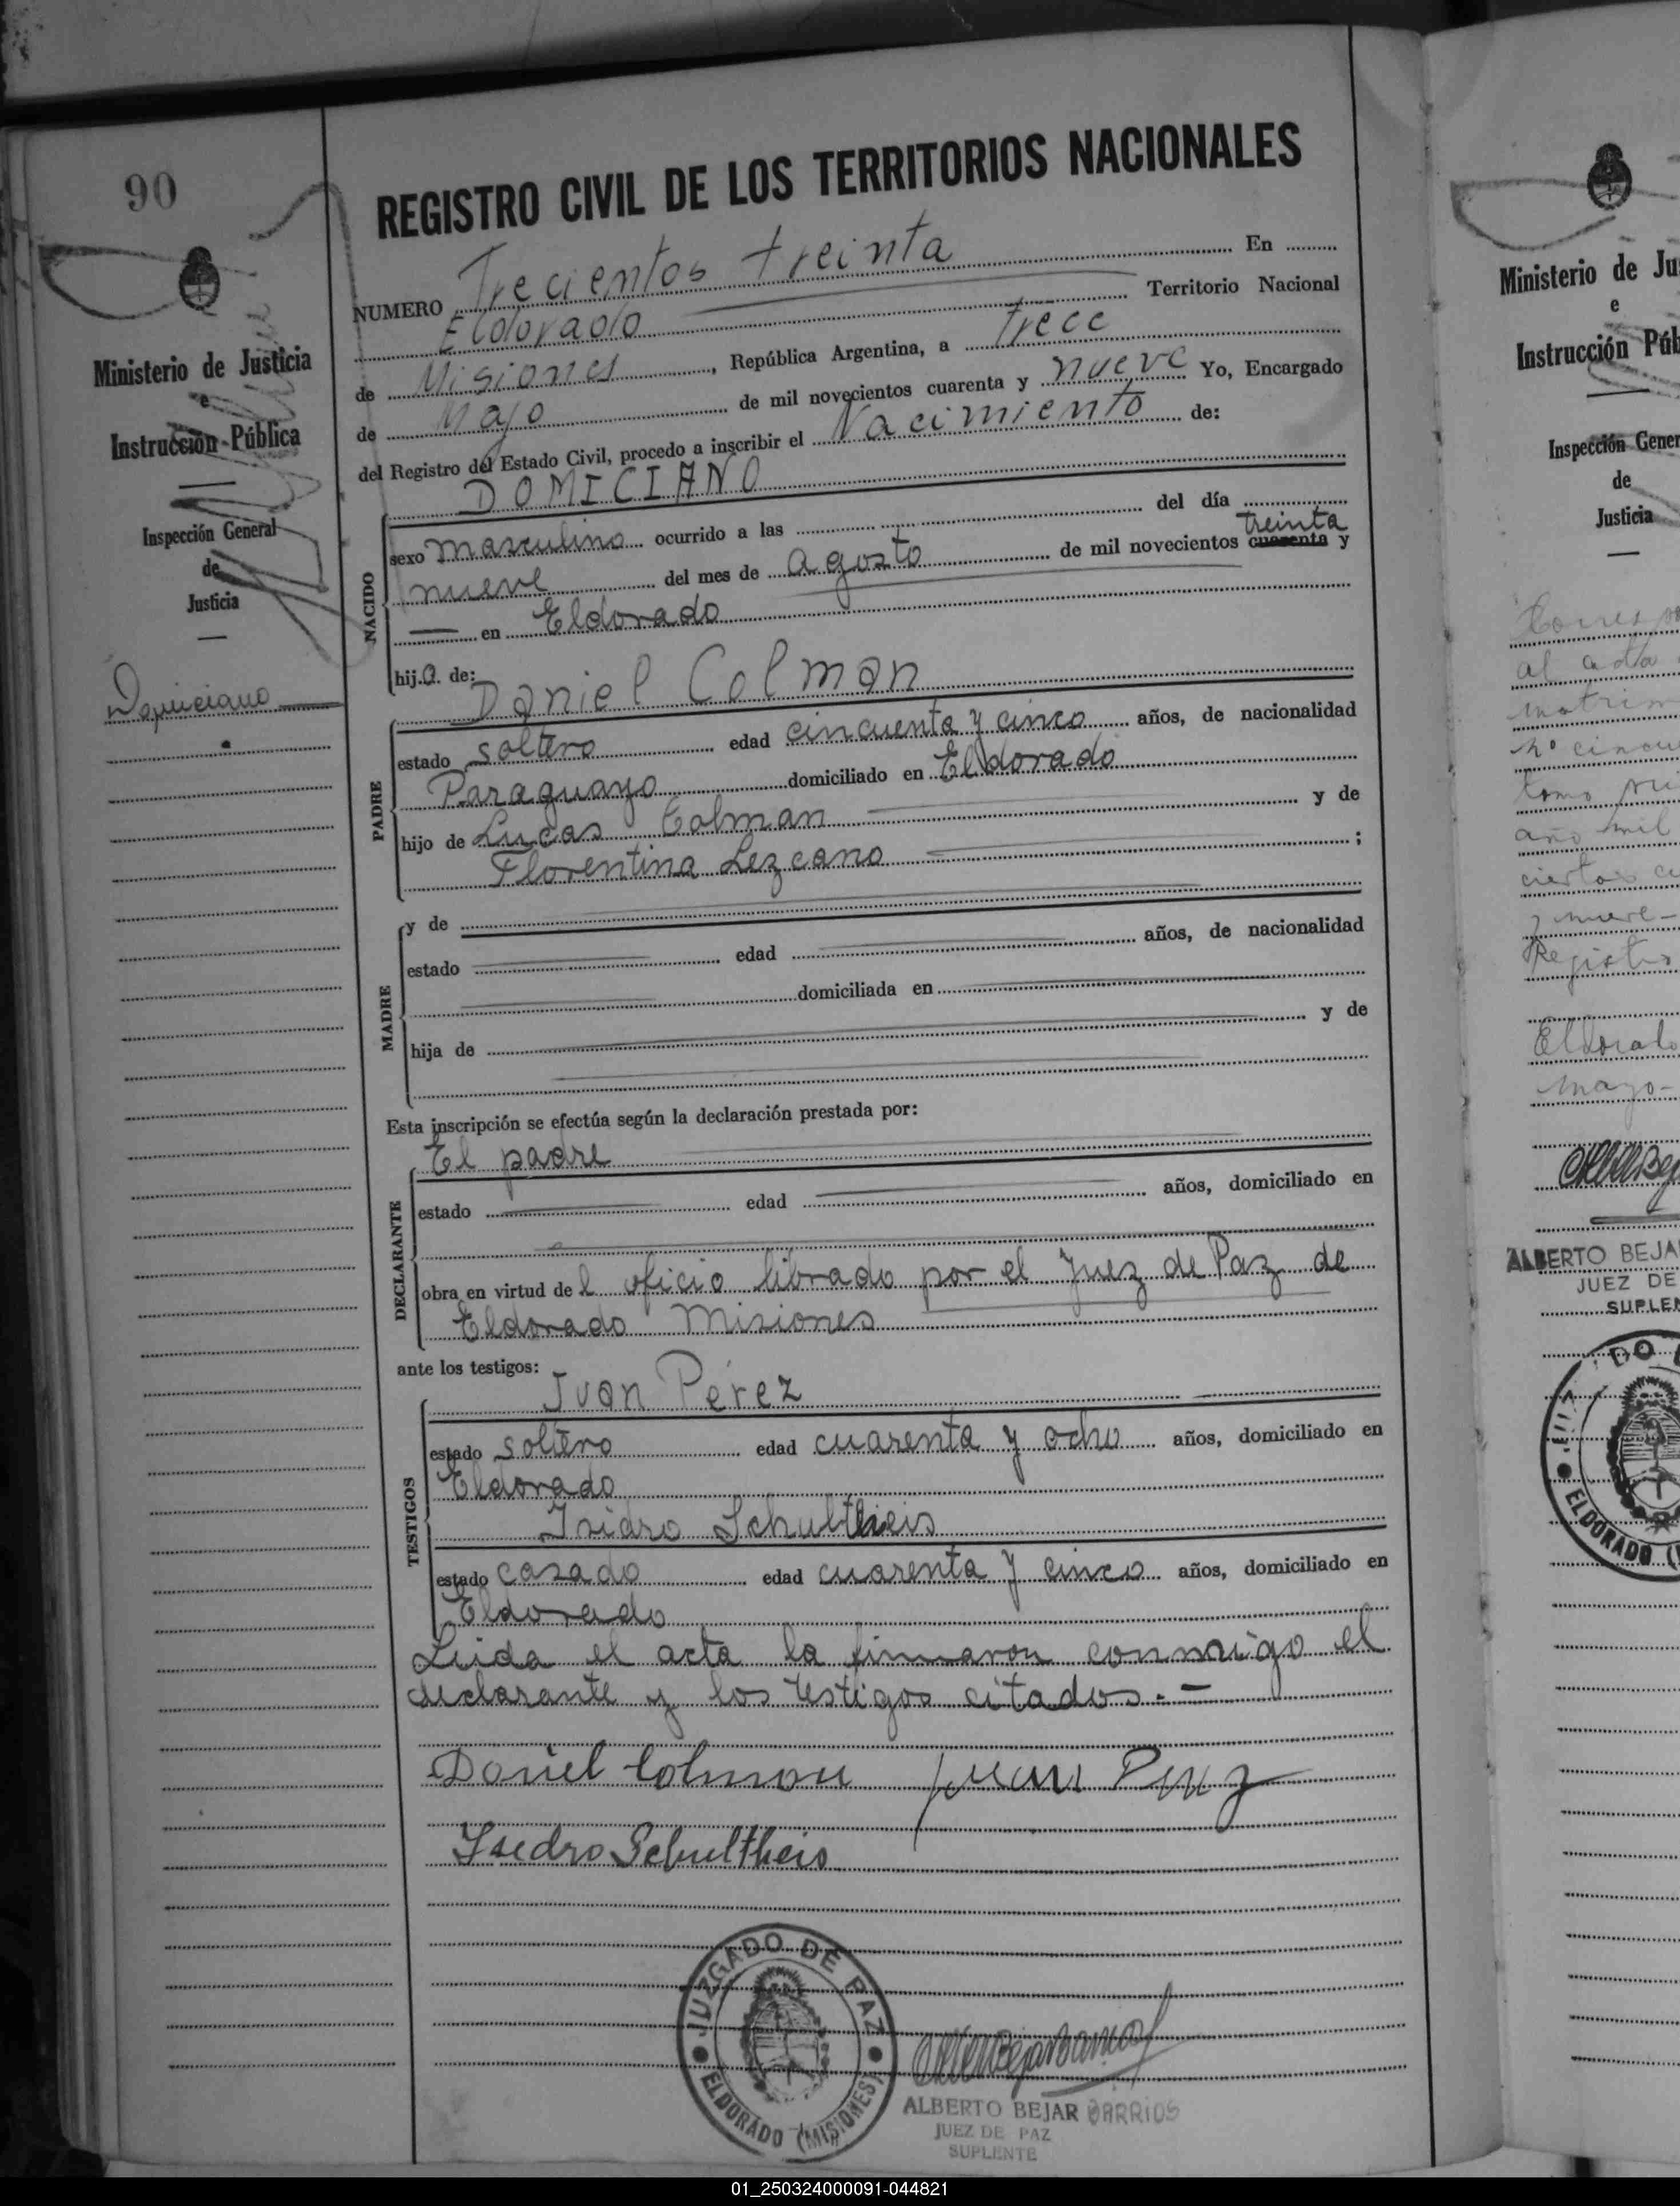 90
Ministerio de Justicia
e
Instrucción Pública
Inspección General
de
Justicia
Domiciano
REGISTRO CIVIL DE LOS TERRITORIOS NACIONALES
NUMERO Trecientos treinta En
Eldorado Territorio Nacional
de Misiones, República Argentina, a trece
de Mayo de mil novecientos cuarenta y nueve Yo, Encargado
del Registro del Estado Civil, procedo a inscribir el Nacimiento de:
DOMICIANO
NACIDO
sexo masculino ocurrido a las del día
treinta
nueve del mes de agosto de mil novecientos cuarenta y
en Eldorado
hijo de:
Daniel Colman
PADRE
estado soltero edad cincuenta y cinco años, de nacionalidad
Paraguayo domiciliado en Eldorado
hijo de Lucas Colman y de
Florentina Lezcano ;
MADRE
y de
estado edad años, de nacionalidad
domiciliada en
hija de y de
Esta inscripción se efectúa según la declaración prestada por:
El padre
DECLARANTE
estado edad años, domiciliado en
obra en virtud del oficio librado por el Juez de Paz de
Eldorado Misiones
ante los testigos:
Juan Pérez
TESTIGOS
estado soltero edad cuarenta y ocho años, domiciliado en
Eldorado
Isidro Schultheis
estado casado edad cuarenta y cinco años, domiciliado en
Eldorado
Leida el acta la firmaron conmigo el
declarante y los testigos citados.-
Daniel Colman Juan Perez
Isidro Schultheis
JUZGADO DE PAZ
ELDORADO (MISIONES)
ALBERTO BEJAR BARRIOS
JUEZ DE PAZ
SUPLENTE
Ministerio de Ju
e
Instrucción Púb
Inspección Gener
de
Justicia
al acta
matrim
nº cincu
tomo
año mil
y nueve-
Registro
Eldorado
mayo-
ALBERTO BEJA
JUEZ DE
SUPLEN
ELDORADO (
01_250324000091-044821